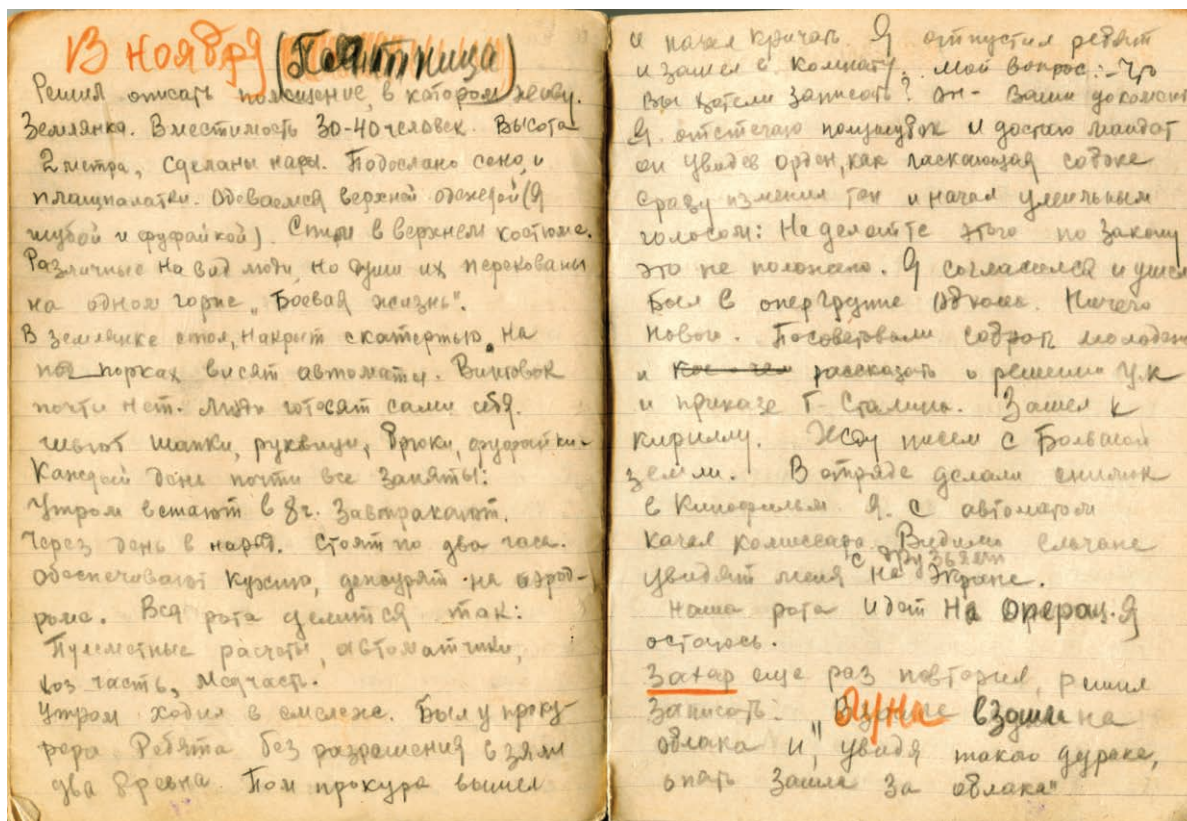 8 ноября (Пятница)
Решил описать помещение, в котором живу.
Землянка. Вместимость 30-40 человек. Высота
2 метра, сделаны нары. Подослано сено, и
плащпалатки. Одеваемся верхней одежей (я
шубой и фуфайкой). Спим в верхнем костюме.
Различные на вид люди, но души их перекованы
на одном горне „Боевая жизнь".
В землянке стол, накрыт скатертью. На
порках висят автоматы. Винтовок
почти нет. Люди готовят сами себя.
шьют шапки, руквици, брюки, фуфайки-
Каждый день почти все заняты:
Утром встают в 8 г. Завтракают.
Через день в наряд. Стоят по два часа.
обеспечивают кухню, дежурят на аэрод-
роме. Вся рота делится так:
Пулеметные расчеты, автоматчики,
хоз часть, медчасть.
Утром ходил в Был у проку-
рора Ребята без разрешения взяли
два бревна. Пом прокура вышел
и начал кричать. Я отпустил ребят
и зашел в комнату. Мой вопрос: - Что
Вы хотели записать? Он - Ваши документ
Я отстегаю полушубок и достаю мандат
он увидев орден, как ласкающая собаке
сразу изменил тон и начал умильным
голосом: Не делайте этого по закону
это не положено. Я согласился и ушел
Был в опергруппе Обкома. Ничего
нового. Посоветовали собрать молодежь
и рассказать о решении ЦК
и приказе Т. Сталина. Зашел к
кириллу. Жду писем с Большой
земли. В отряде делали снимок
в Кинофильм Я с автоматом
качал комиссара. Видимо ельчане
с друзьями
увидят меня на Экране.
Наша рота идет На операц. Я
остаюсь.
Захар еще раз повторил, решил
записать: Луна взошла на
облака и, увидя такого дурака,
опять зашла за облака"